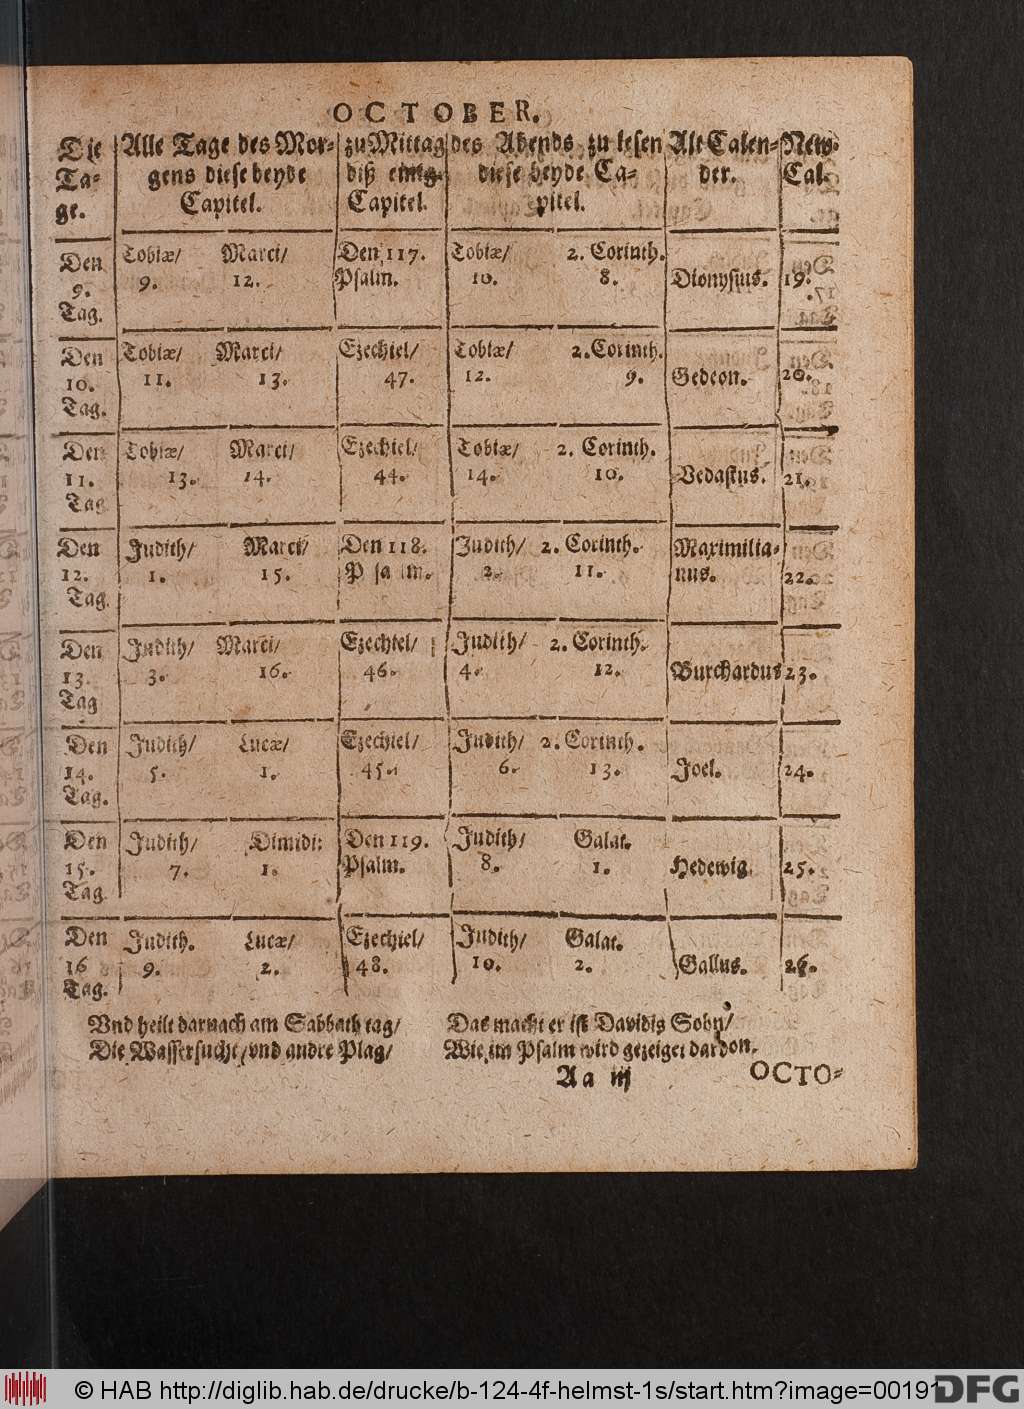 OCTOBER.
Die Alle Tage des Mor- zu Mittag des Abends zu lesen Alt Calen- New-
Ta- gens diese beyde diß einig- diese beyde Ca- der. Cal.
ge. Capitel. Capitel. pitel.
Den Tobiæ/ Marci/ Den 117. Tobiæ/ 2. Corinth.
9. 9. 12. Psalm. 10. 8. Dionysius. 19.
Tag.
Den Tobiæ/ Marci/ Ezechiel/ Tobiæ/ 2. Corinth.
10. 11. 13. 47. 12. 9. Gedeon. 20.
Tag.
Den Tobiæ/ Marci/ Ezechiel/ Tobiæ/ 2. Corinth.
11. 13. 14. 44. 14. 10. Vedastus. 21.
Tag
Den Judith/ Marci/ Den 118. Judith/ 2. Corinth. Maximilia-
12. 1. 15. Psalm. 2. 11. nus. 22.
Tag.
Den Judith/ Marci/ Ezechiel/ Judith/ 2. Corinth.
13. 3. 16. 46. 4. 12. Burchardus 23.
Tag
Den Judith/ Lucæ/ Ezechiel/ Judith/ 2. Corinth.
14. 5. 1. 45. 6. 13. Joel. 24.
Tag.
Den Judith/ Dimidi: Den 119. Judith/ Galat.
15. 7. 1. Psalm. 8. 1. Hedewig. 25.
Tag
Den Judith. Lucæ/ Ezechiel/ Judith/ Galat.
16 9. 2. 48. 10. 2. Gallus. 26.
Tag.
Vnd heilt darnach am Sabbath tag/
Die Wassersucht/ vnd andre Plag/
Das macht er ist Davidis Sohn/
Wie im Psalm wird gezeiget darvon.
Aa iij OCTO-
© HAB http://diglib.hab.de/drucke/b-124-4f-helmst-1s/start.htm?image=00191
DFG